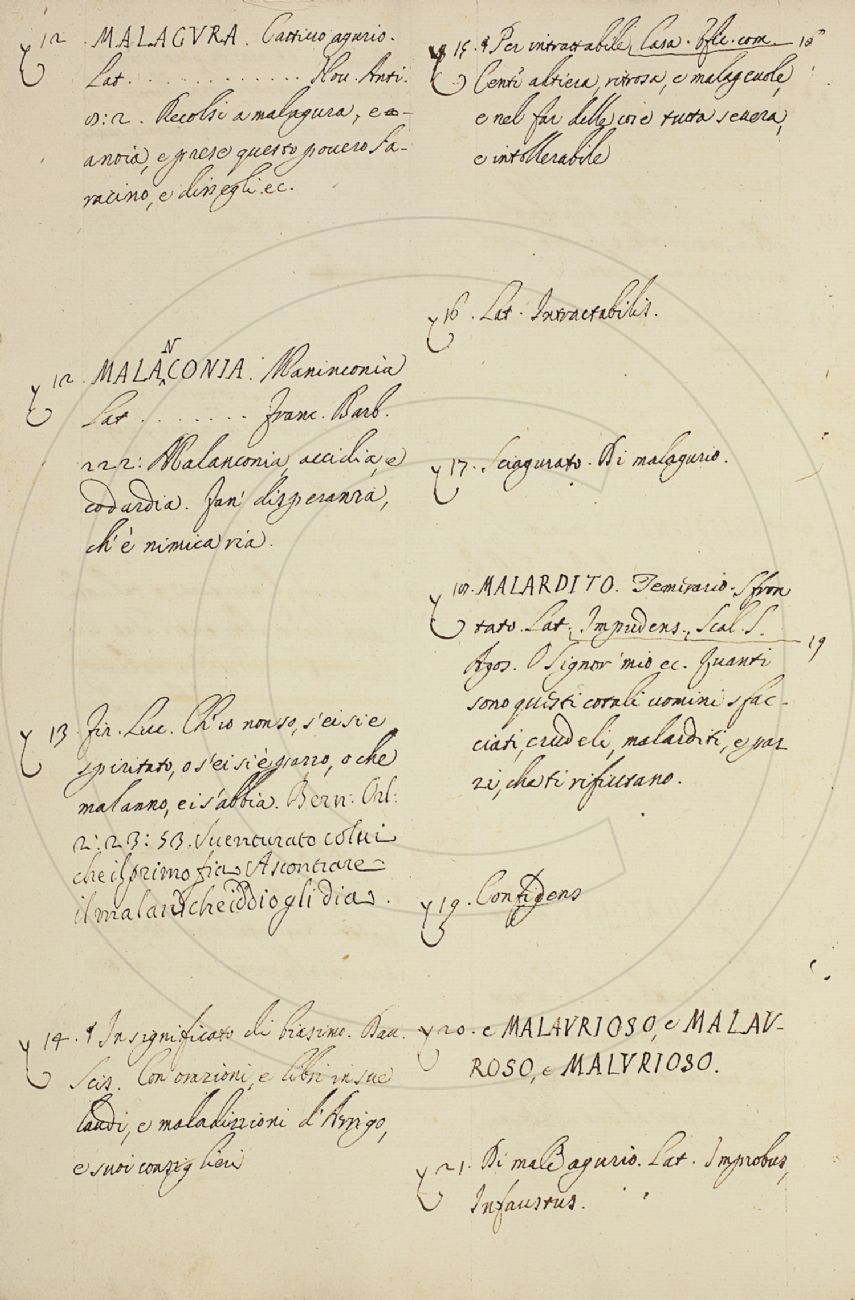 12 MALAGVRA. Cattivo agurio.
Lat. . . . . . . . . . . . . Nov. Anti.
8:2. Recolsi a malagura, e a-
anoia, e prese questo povero Sa-
racino, e dissegli. ec.
12. MALANCONIA. Maninconia
Lat . . . . . . . . Franc. Barb.
222: Malanconia, accidia, e
codardia. Fan' disperanza,
ch'è nimica ria.
13. Fir. Luc. Ch'io non so, s'ei si è
spiritato, o s'ei si è pazzo, o che
malanno, ei s'abbia. Bern: Orl:
2: 23: 53. Sventurato colui
che il primo fia, A scontrare
il malan, che iddio gli dia.
14. ¶ In significato di biasimo. Dav.
Scis. Con orazioni, e libri in sue
laudi, e maladizzioni d'Arrigo,
e suoi consiglieri
15. ¶ Per intrattabile, Casa. Ufic. com 16
Centi altiera, ritrosa, e malagevole,
e nel far delle cose tutta severa,
e intollerabile
16. Lat. Intractabilis.
17. Sciagurato. Di malagurio.
18. MALARDITO. Temerario. Sfron
tato. Lat. Impudens. Scal. S. 19
Agos. O Signor mio ec. Quanti
sono questi cotali uomini sfac-
ciati, crudeli, malarditi, e paz
zi, che ti rifiutano.
19. Confidens
20. e MALAVRIOSO, e MALAV-
ROSO, e MALVRIOSO.
21. Di male agurio. Lat. Improbus,
Infaustus.